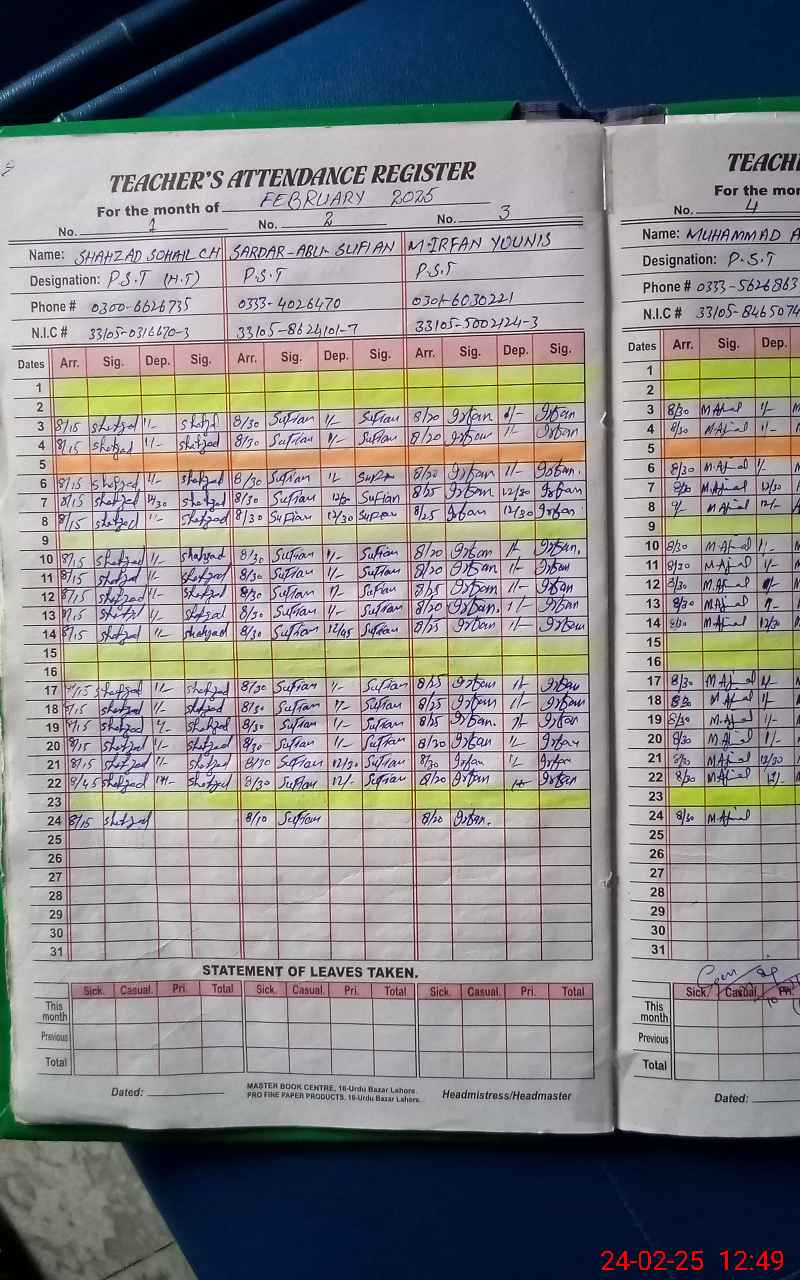 TEACHER'S ATTENDANCE REGISTER
For the month of FEBRUARY 2025
No. 1 No. 2 No. 3
Name: SHAHZAD SOHAIL CH SARDAR-ABU-SUFIAN M-IRFAN YOUNIS
Designation: P.S.T (H.T) P.S.T P.S.T
Phone # 0300-6626735 0333-4026470 0301-6030221
N.I.C # 33105-0316670-3 33105-8624101-7 33105-5002124-3
Dates Arr. Sig. Dep. Sig. Arr. Sig. Dep. Sig. Arr. Sig. Dep. Sig.
1
2
3 8/15 shahzad 1/- shahzad 8/30 Sufian 1/- Sufian 8/20 Irfan 1/- Irfan
4 8/15 shahzad 1/- shahzad 8/30 Sufian 1/- Sufian 8/20 Irfan 1/- Irfan
5
6 8/15 shahzad 1/- shahzad 8/30 Sufian 1/- Sufian 8/20 Irfan 1/- Irfan.
7 8/15 shahzad 12/30 shahzad 8/30 Sufian 12/30 Sufian 8/25 Irfan 12/30 Irfan
8 8/15 shahzad 1/- shahzad 8/30 Sufian 12/30 Sufian 8/25 Irfan 12/30 Irfan
9
10 8/15 shahzad 1/- shahzad 8/30 Sufian 1/- Sufian 8/20 Irfan 1/- Irfan.
11 8/15 shahzad 1/- shahzad 8/30 Sufian 1/- Sufian 8/20 Irfan 1/- Irfan
12 8/15 shahzad 1/- shahzad 8/30 Sufian 1/- Sufian 8/25 Irfan 1/- Irfan
13 8/15 shahzad 1/- shahzad 8/30 Sufian 1/- Sufian 8/20 Irfan. 1/- Irfan
14 8/15 shahzad 1/- shahzad 8/30 Sufian Sufian 8/25 Irfan 1/- Irfan
15
16
17 8/15 shahzad 1/- shahzad 8/30 Sufian 1/- Sufian 8/25 Irfan 1/- Irfan
18 8/15 shahzad 1/- shahzad 8/30 Sufian 1/- Sufian 8/25 Irfan 1/- Irfan
19 8/15 shahzad 1/- shahzad 8/30 Sufian 1/- Sufian 8/25 Irfan. 1/- Irfan
20 8/15 shahzad 1/- shahzad 8/30 Sufian 1/- Sufian 8/20 Irfan 1/- Irfan
21 8/15 shahzad 1/- shahzad 8/30 Sufian 12/30 Sufian 8/30 Irfan 1/- Irfan
22 8/45 shahzad shahzad 8/30 Sufian 12/- Sufian 8/20 Irfan Irfan
23
24 8/15 shahzad 8/10 Sufian 8/20 Irfan.
25
26
27
28
29
30
31
STATEMENT OF LEAVES TAKEN.
Sick. Casual. Pri. Total Sick. Casual. Pri. Total Sick. Casual. Pri. Total
This month
Previous
Total
Dated: MASTER BOOK CENTRE, 16-Urdu Bazar Lahore.
PRO FINE PAPER PRODUCTS, 16-Urdu Bazar Lahore.
Headmistress/Headmaster
TEACH
For the mon
No. 4
Name: MUHAMMAD A
Designation: P.S.T
Phone # 0333-5626863
N.I.C # 33105-8465074
Dates Arr. Sig. Dep.
1
2
3 8/30 M.Afzal 1/-
4 8/30 M.Afzal 1/-
5
6 8/30 M.Afzal 1/-
7 8/30 M.Afzal 12/30
8 M.Afzal 12/-
9
10 8/30 M.Afzal 1/-
11 8/20 M.Afzal 1/-
12 8/30 M.Afzal
13 8/30 M.Afzal
14 8/30 M.Afzal 12/30
15
16
17 8/30 M.Afzal 1/-
18 8/30 M.Afzal 1/-
19 8/30 M.Afzal 1/-
20 8/30 M.Afzal 1/-
21 8/30 M.Afzal 12/30
22 8/30 M.Afzal 12/-
23
24 8/30 M.Afzal
25
26
27
28
29
30
31
Sick. Casual. Pri.
This month
Previous
Total
Dated:
24-02-25 12:49